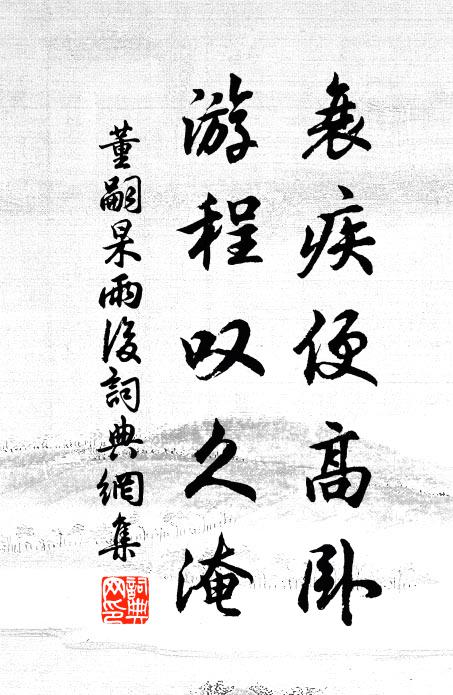 衰疾便高卧
游程叹久淹
董嗣杲雨後詞典網集
詞典網印